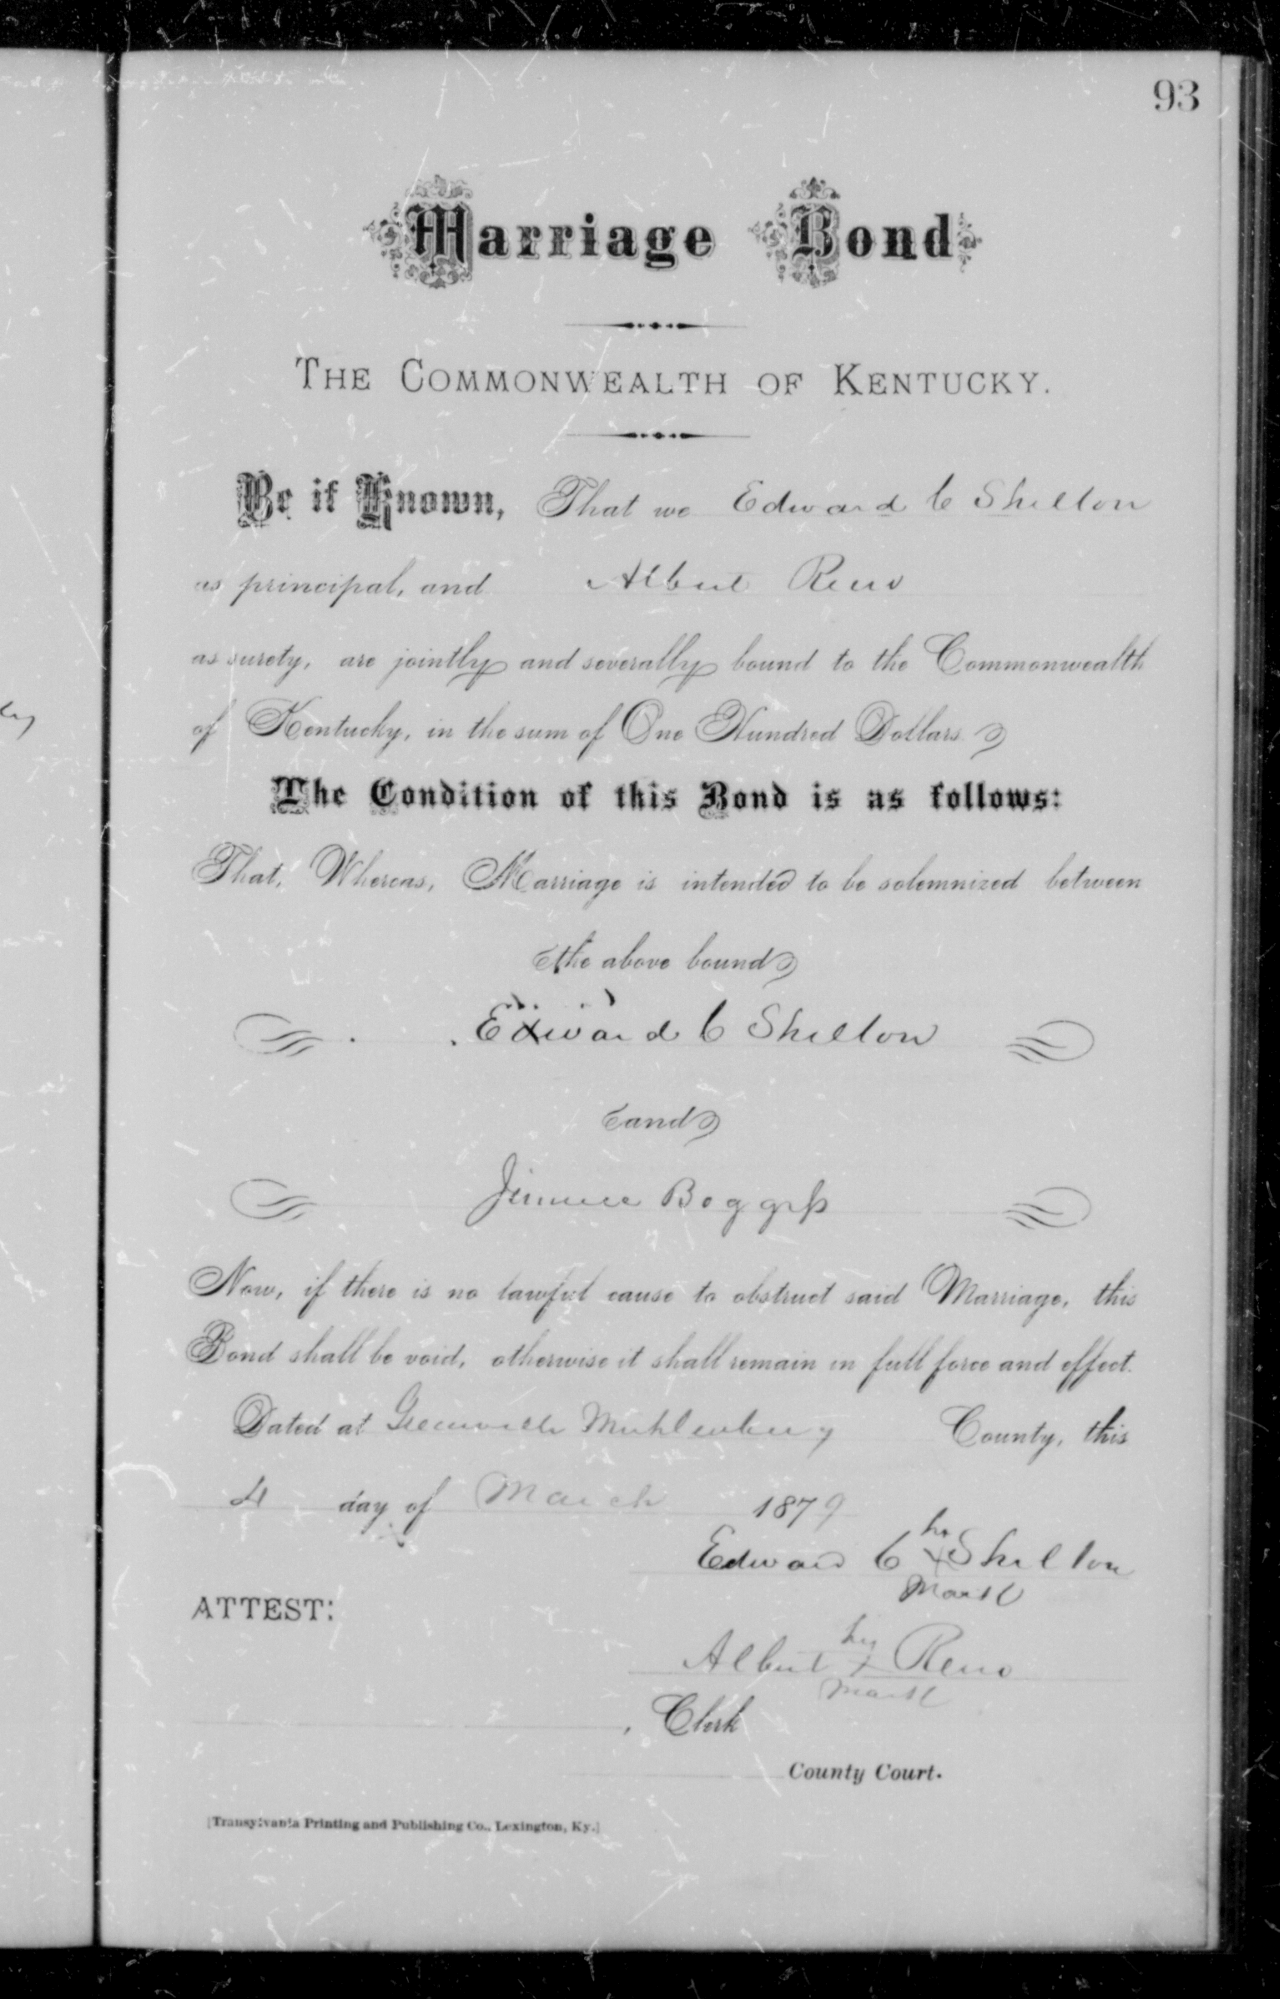 93
Marriage Bond
THE COMMONWEALTH OF KENTUCKY.
Be it Known, That we Edward C Shelton
as principal, and Albert Reno
as surety, are jointly and severally bound to the Commonwealth
of Kentucky, in the sum of One Hundred Dollars.
The Condition of this Bond is as follows:
That, Whereas, Marriage is intended to be solemnized between
the above bound
Edward C Shelton
and
Jimmie Boggess
Now, if there is no lawful cause to obstruct said Marriage, this
Bond shall be void, otherwise it shall remain in full force and effect.
Dated at Greenville Muhlenberg County, this
4 day of March 1879
his
Edward C x Shelton
Mark
ATTEST:
his
Albert x Reno
Mark
, Clerk
County Court.
[Transylvania Printing and Publishing Co., Lexington, Ky.]